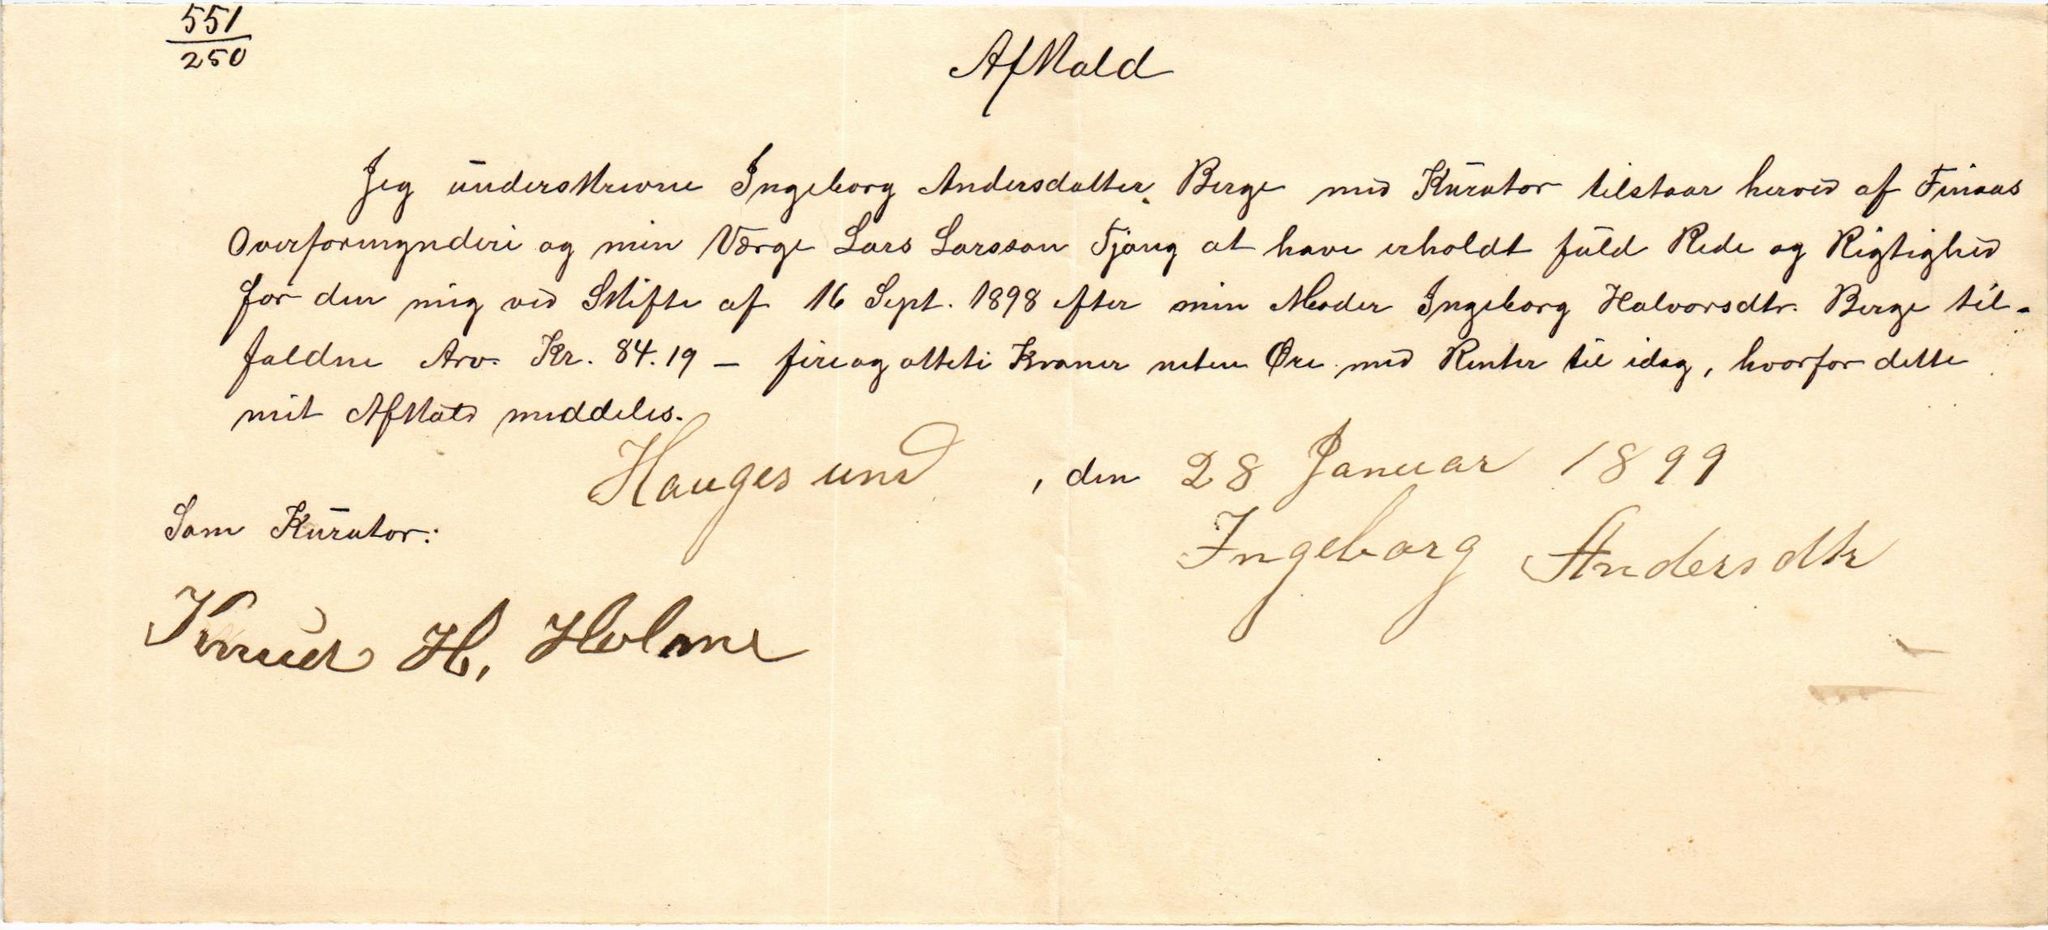 551
250
Afkald
Jeg underskrevne Ingeborg Andersdatter Berge med Kurator tilstaar herved af Finaas
Overformynderi og min Værge Lars Larsson Tjong at have erholdt fuld Rede og Rigtighed
for den mig ved Skifte af 16 Sept. 1898 efter min Moder Ingeborg Halvorsdtr. Berge til-
faldne Arv Kr. 84.19 — fireogotteti Kroner nitten Øre med Renter til idag, hvorfor dette
mit Afkald meddeles.
Haugesund, den 28 Januar 1899
Som Kurator:
Ingeborg Andersdtr
Knud H. Holme